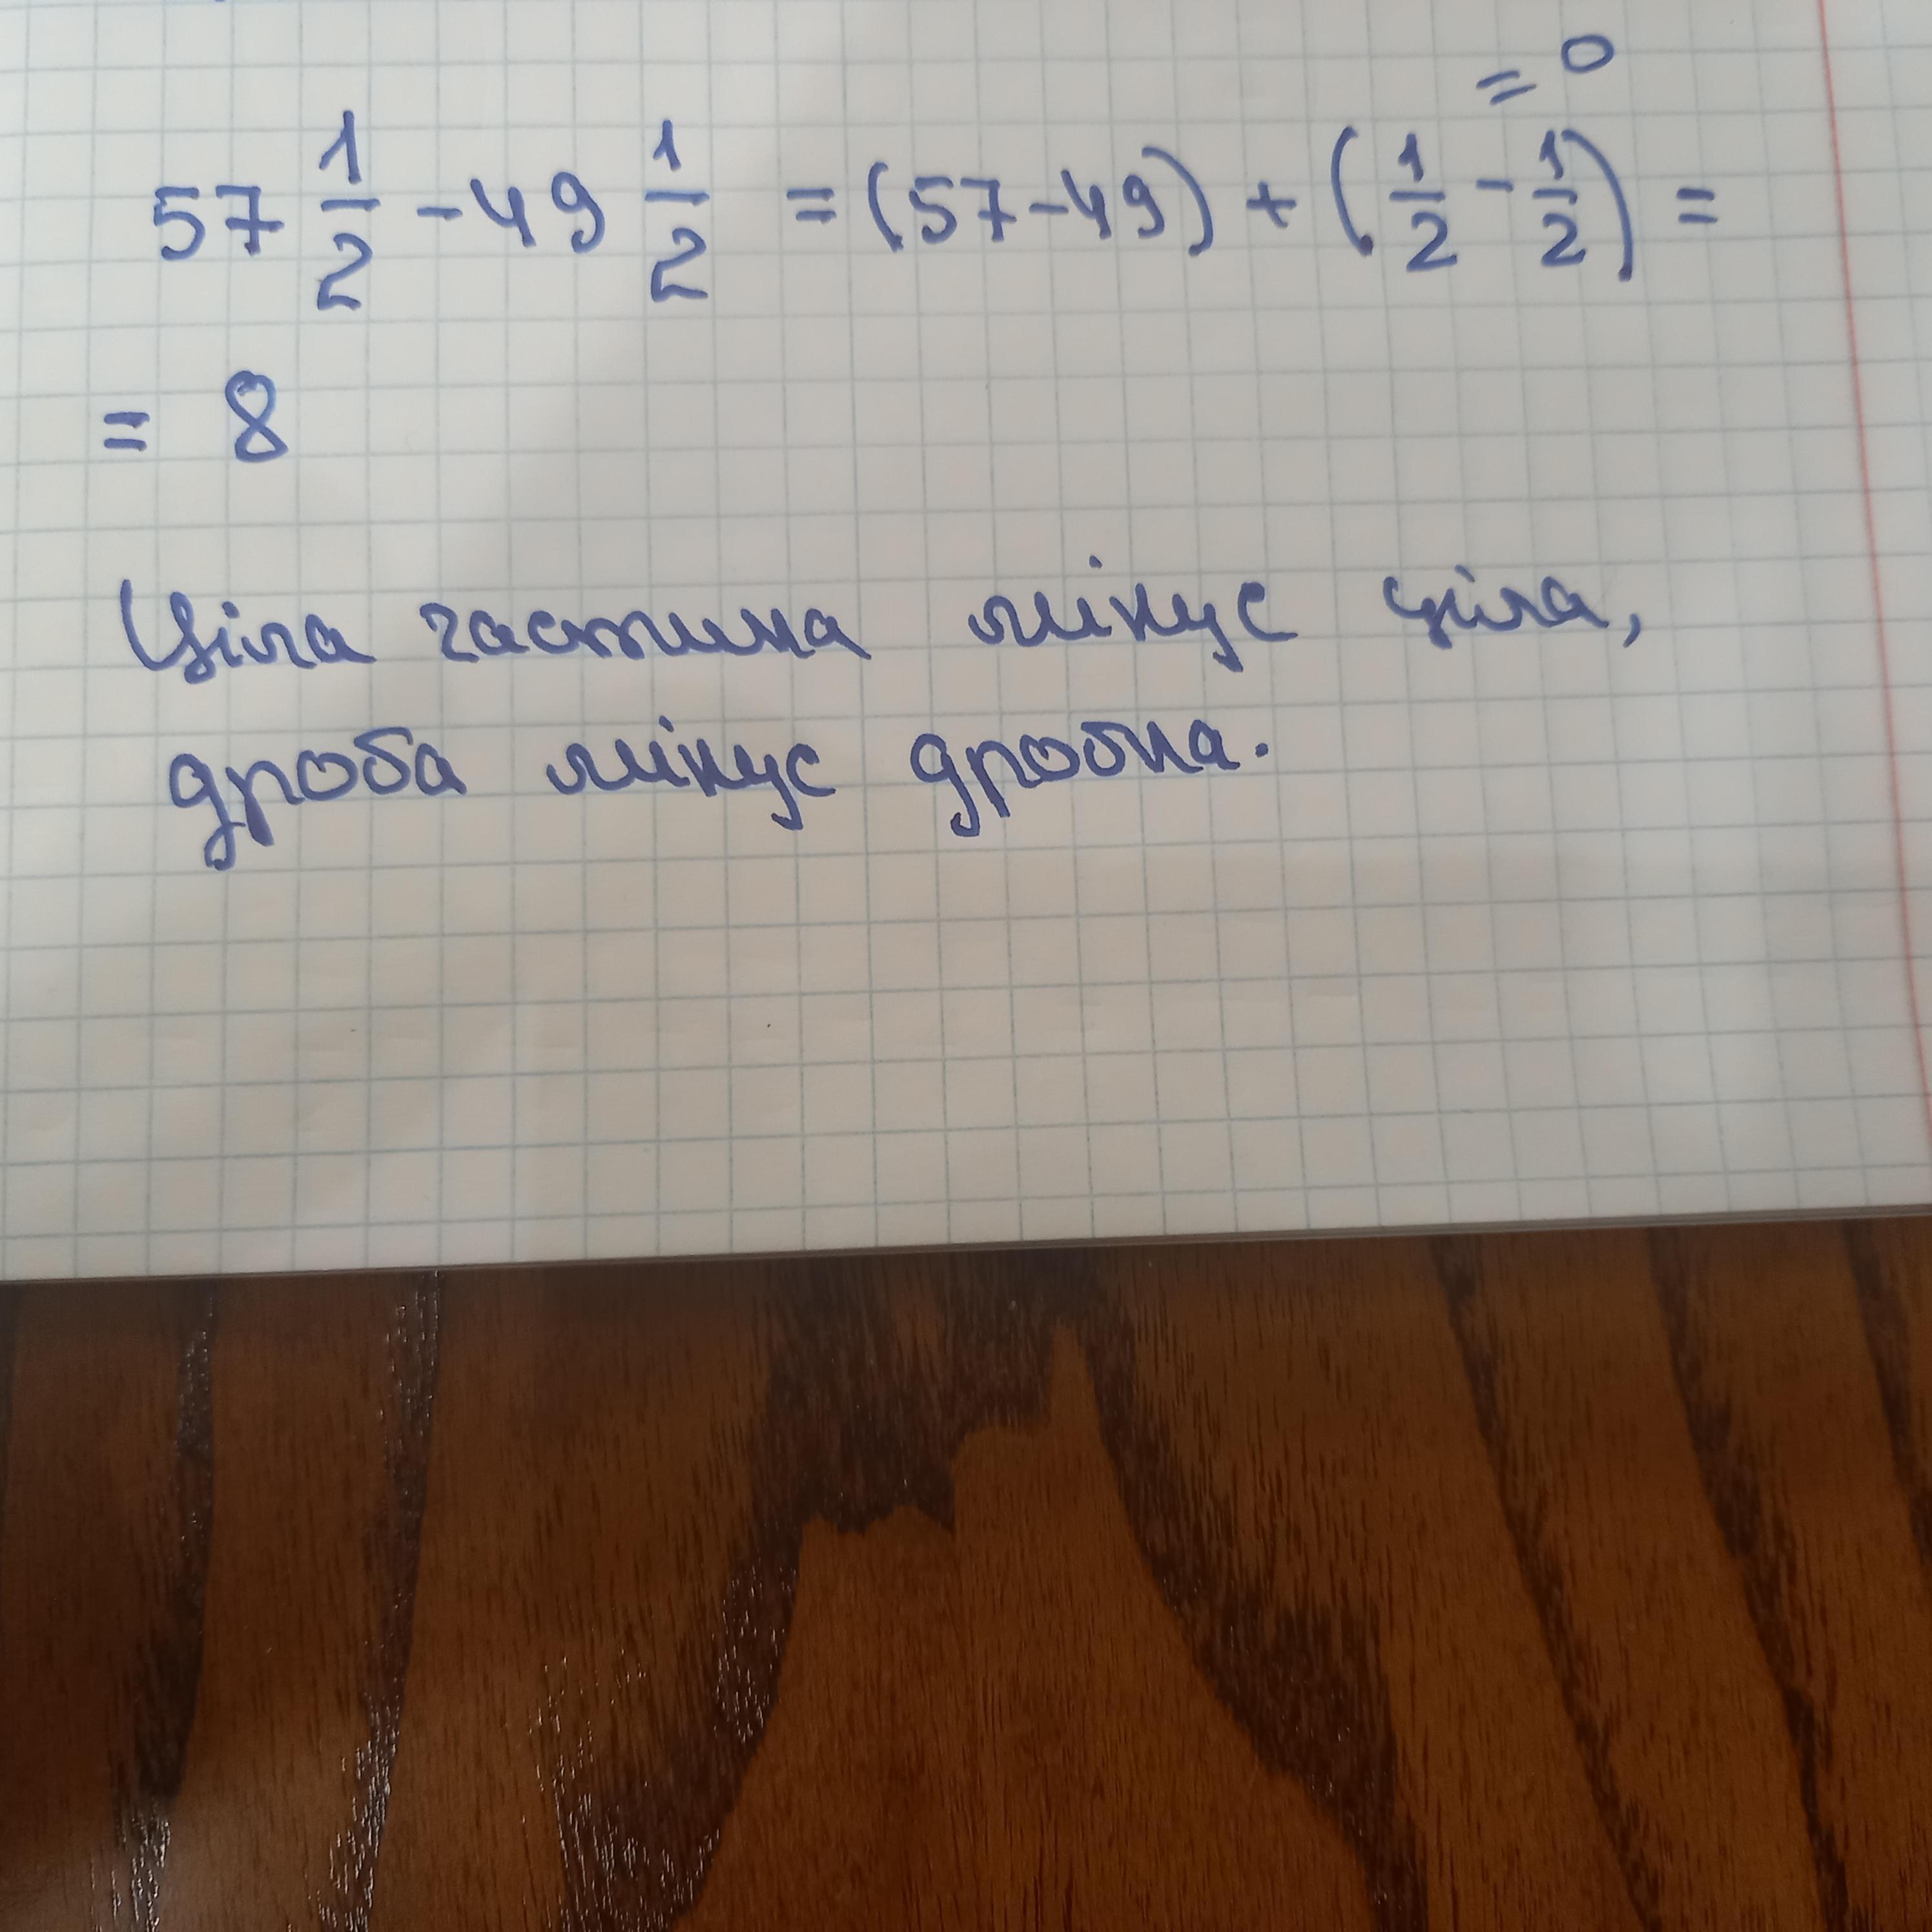 = 0
57 1/2 - 49 1/2 = (57 - 49) + (1/2 - 1/2) =
= 8
Ціла частина мінус ціла,
дроба мінус дробна.